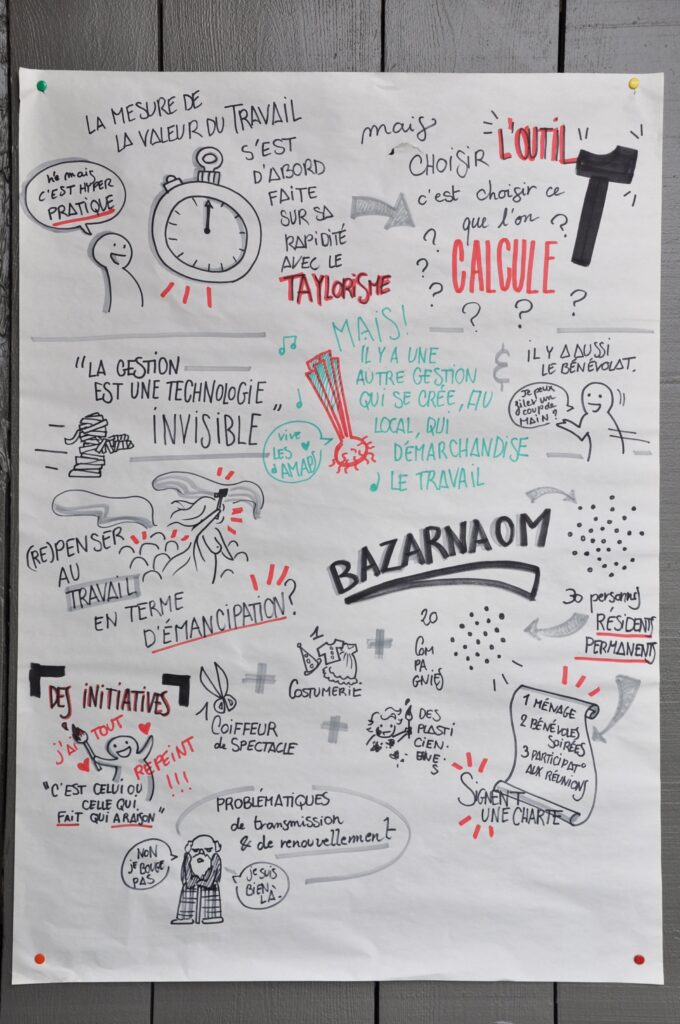 LA MESURE DE
LA VALEUR DU TRAVAIL
hé mais
C'EST HYPER
PRATIQUE
S'EST
D'ABORD
FAITE
SUR SA
RAPIDITÉ
AVEC LE
TAYLORISME
mais
CHOISIR L'OUTIL
c'est choisir ce
que l'on ?
CALCULE
? ? ? ? ? ? ?
"LA GESTION
EST UNE TECHNOLOGIE
INVISIBLE"
MAIS!
IL Y A UNE
AUTRE GESTION
QUI SE CRÉE, AU
LOCAL, QUI
DÉMARCHANDISE
LE TRAVAIL
vive
LES
AMAPS
&
IL Y A AUSSI
LE BÉNÉVOLAT.
Je peux
filer un
coup de
MAIN?
(RE)PENSER
AU
TRAVAIL
EN TERME
D'ÉMANCIPATION?
BAZARNAOM
30 personnes
RÉSIDENTS
PERMANENTS
20
COM
PA
GNIES
+
1
COSTUMERIE
+
1 COIFFEUR
de SPECTACLE
+
DES
PLASTI
CIEN·
NE·S
1 MÉNAGE
2 BÉNÉVOLES
SOIRÉES
3 PARTICIPAT°
AUX RÉUNIONS
SIGNENT
UNE CHARTE
DES INITIATIVES
j'ai TOUT
REPEINT
!!!
"C'EST CELUI OU
CELLE QUI
FAIT QUI A RAISON"
PROBLÉMATIQUES
de transmission
& de renouvellement
NON
je BOUGE
PAS
je SUIS
BIEN
LÀ.